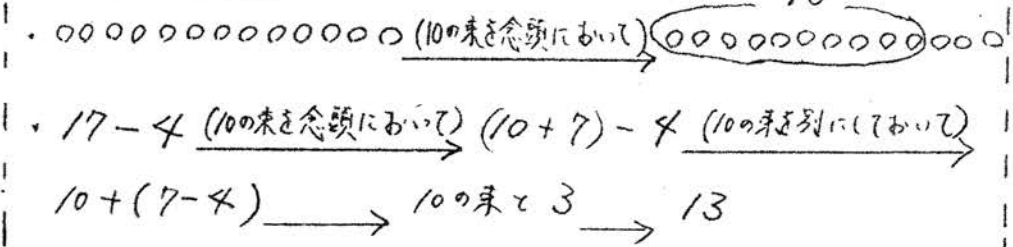 10
・○○○○○○○○○○○○○ (10の束を念頭において) → ○○○○○○○○○○○○○
・17-4 (10の束を念頭において) → (10+7)-4 (10の束を別にしておいて) →
10+(7-4) → 10の束と3 → 13